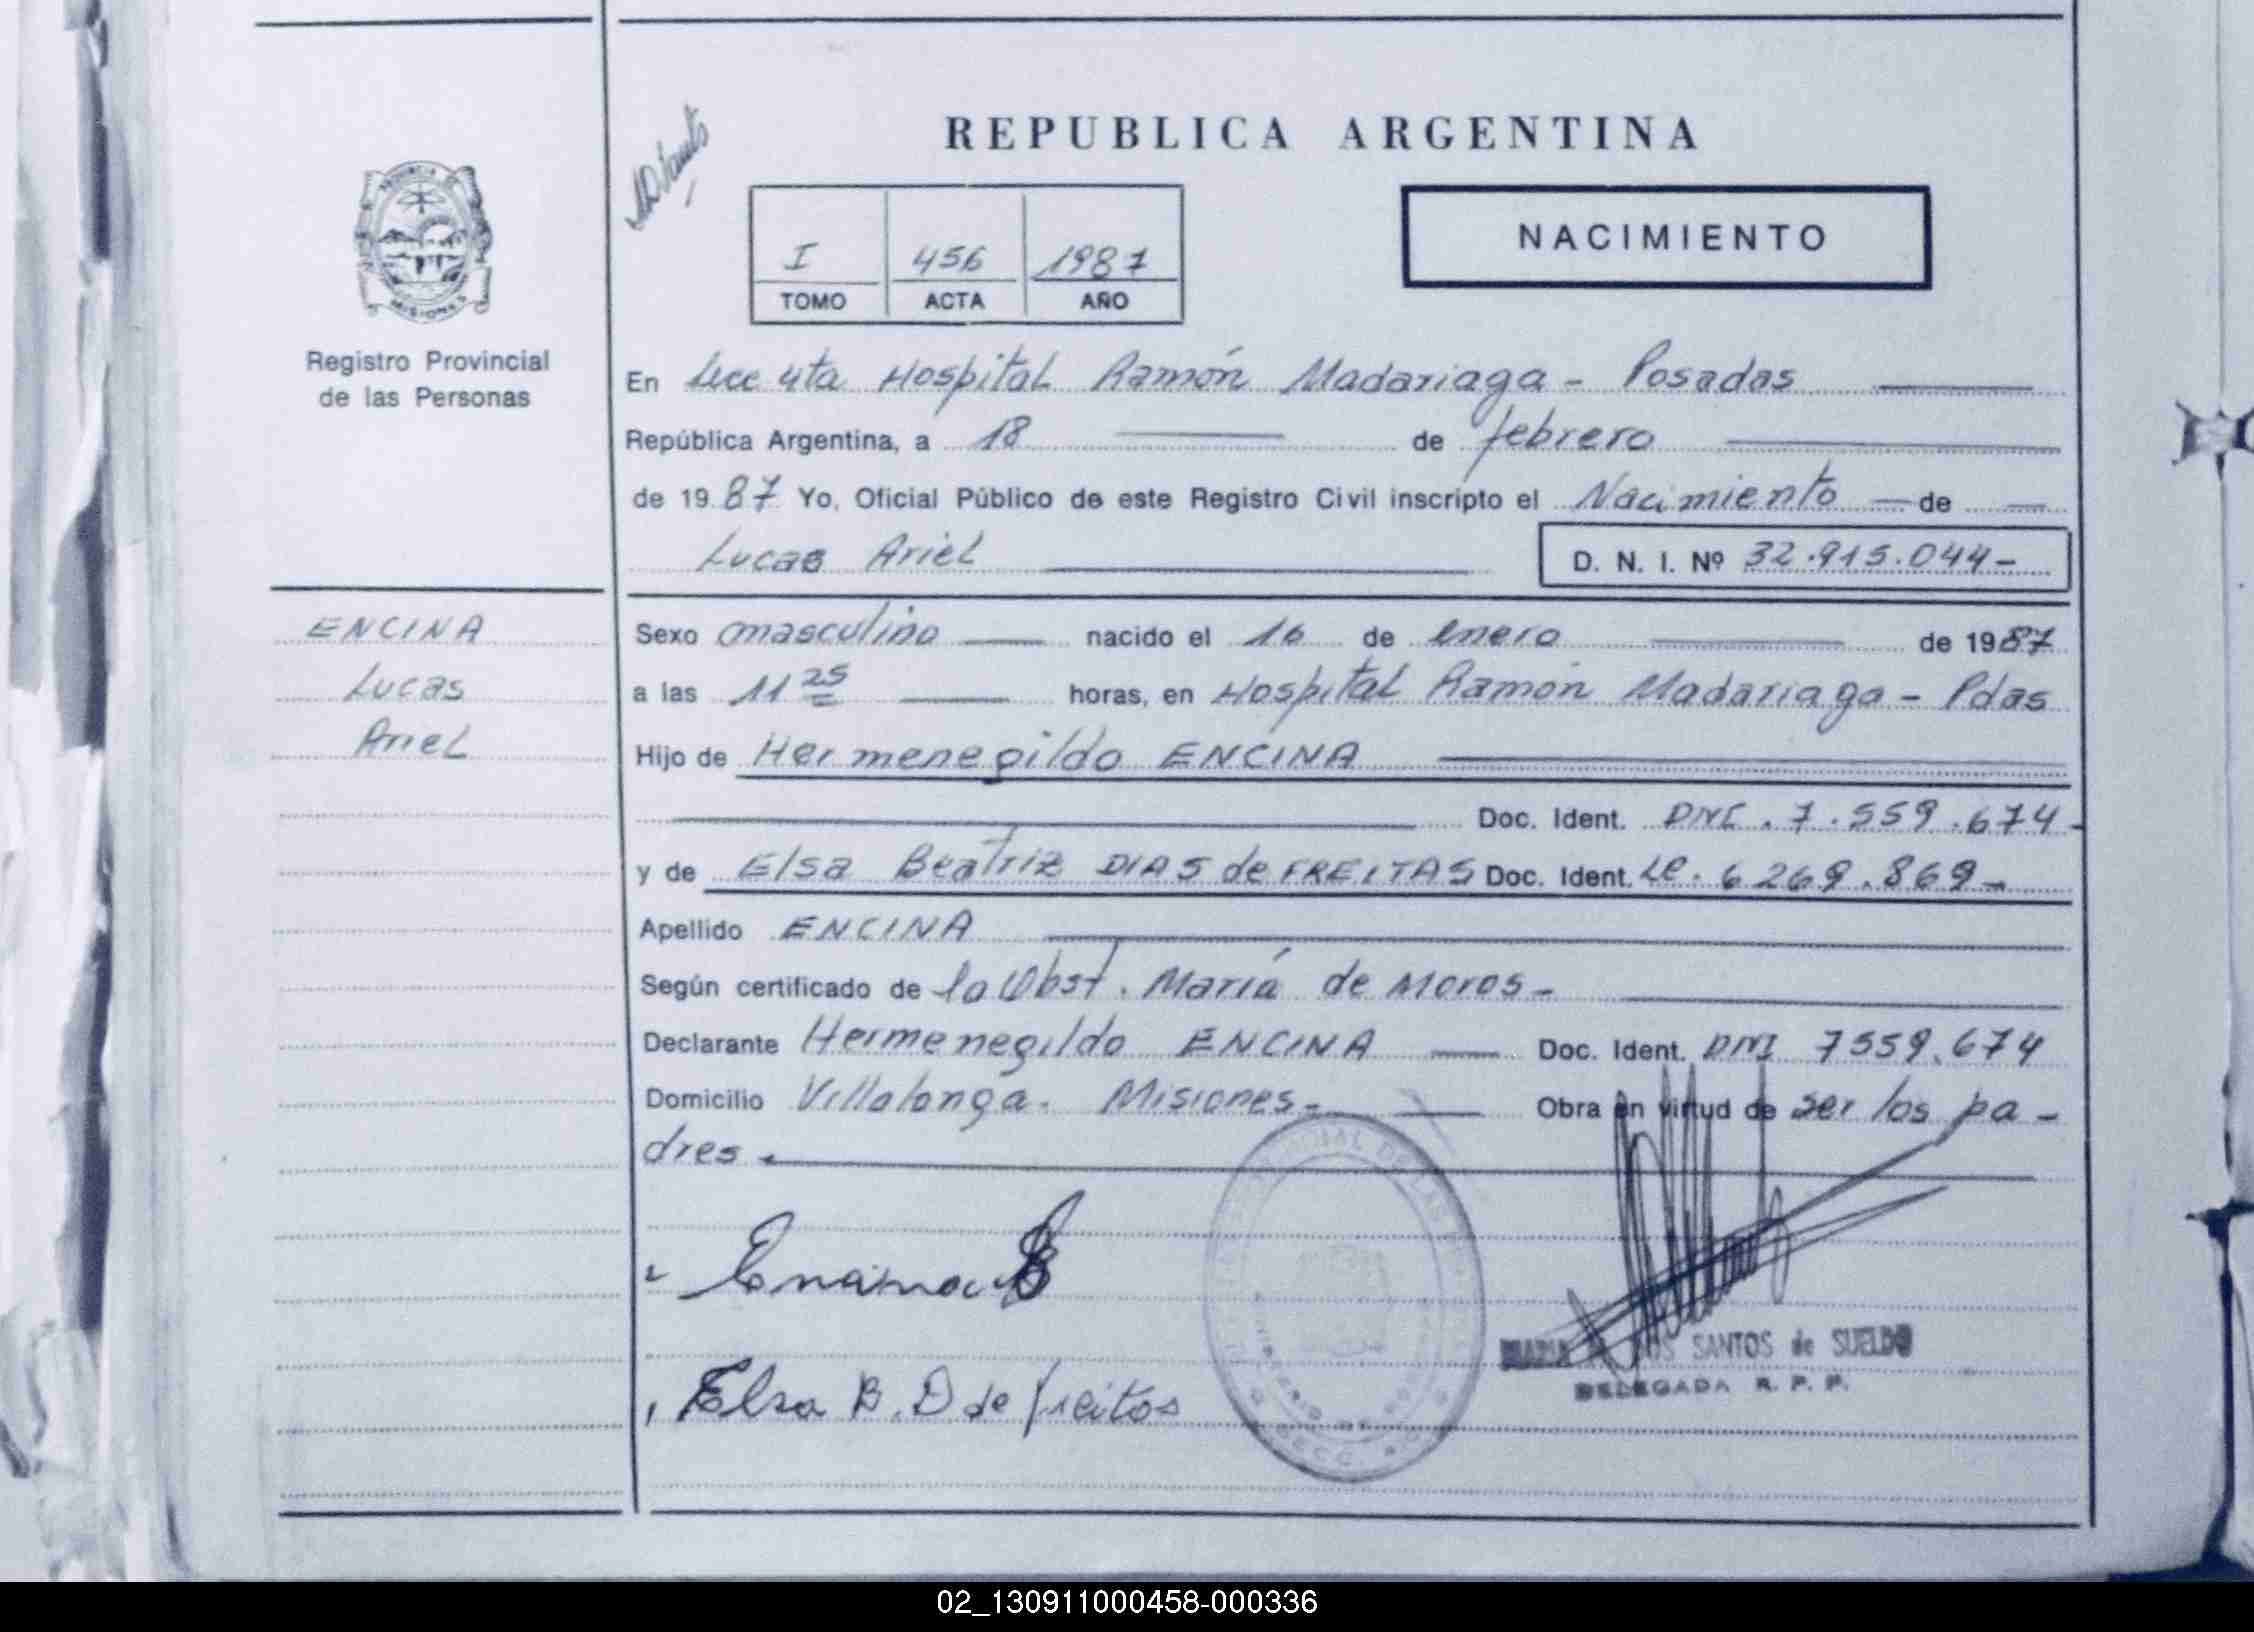 REPUBLICA ARGENTINA
PROVINCIA DE
MISIONES
Registro Provincial
de las Personas
I 456 1987
TOMO ACTA AÑO
NACIMIENTO
En Secc 4ta Hospital Ramón Madariaga - Posadas
República Argentina, a 18 de febrero
de 1987 Yo, Oficial Público de este Registro Civil inscripto el Nacimiento de
Lucas Ariel D. N. I. Nº 32.915.044-
ENCINA
Lucas
Ariel
Sexo masculino nacido el 16 de enero de 1987
a las 11 25 horas, en Hospital Ramón Madariaga - Pdas
Hijo de Hermenegildo ENCINA
Doc. Ident. DNI. 7.559.674-
y de Elsa Beatriz DIAS de FREITAS Doc. Ident. LC. 6269.869-
Apellido ENCINA
Según certificado de la Obst. María de Moros-
Declarante Hermenegildo ENCINA Doc. Ident. DNI 7559.674
Domicilio Villalonga. Misiones- Obra en virtud de ser los pa-
dres.
Elsa B. D de freitas
MARIA SANTOS de SUELDO
DELEGADA R. P. P.
02_130911000458-000336